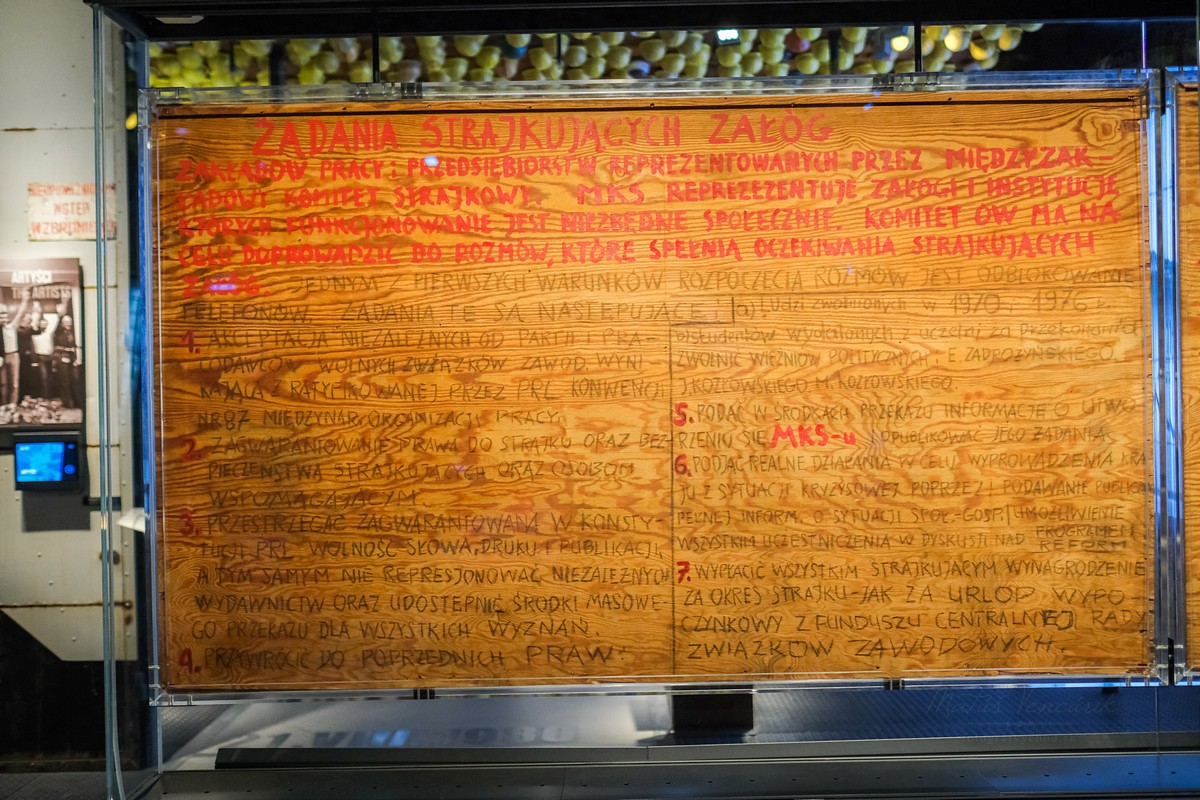 ŻĄDANIA STRAJKUJĄCYCH ZAŁÓG
ZAKŁADÓW PRACY I PRZEDSIĘBIORSTW REPREZENTOWANYCH PRZEZ MIĘDZYZAK-
ŁADOWY KOMITET STRAJKOWY. MKS REPREZEZENTUJE ZAŁOGI I INSTYTUCJE
KTÓRYCH FUNKCJONOWANIE JEST NIEZBĘDNE SPOŁECZNIE. KOMITET ÓW MA NA
CELU DOPROWADZIĆ DO ROZMÓW, KTÓRE SPEŁNIĄ OCZEKIWANIA STRAJKUJĄCYCH
ZAŁÓG. JEDNYM Z PIERWSZYCH WARUNKÓW ROZPOCZĘCIA ROZMÓW JEST ODBLOKOWANIE
TELEFONÓW. ŻĄDANIA TE SĄ NASTĘPUJĄCE:
1. AKCEPTACJA NIEZALEŻNYCH OD PARTII I PRA-
CODAWCÓW WOLNYCH ZWIĄZKÓW ZAWOD. WYNI
KAJĄCA Z RATYFIKOWANEJ PRZEZ PRL KONWENCJI
NR 87 MIĘDZYNAR. ORGANIZACJI PRACY.
2. ZAGWARANTOWANIE PRAWA DO STRAJKU ORAZ BEZ-
PIECZEŃSTWA STRAJKUJĄCYCH ORAZ OSOBOM
WSPOMAGAJĄCYM
3. PRZESTRZEGAĆ ZAGWARANTOWANĄ W KONSTY-
TUCJI PRL WOLNOŚĆ SŁOWA, DRUKU I PUBLIKACJI,
A TYM SAMYM NIE REPRESJONOWAĆ NIEZALEŻNYCH
WYDAWNICTW ORAZ UDOSTĘPNIĆ ŚRODKI MASOWE-
GO PRZEKAZU DLA WSZYSTKICH WYZNAŃ.
4. PRZYWRÓCIĆ DO POPRZEDNICH PRAW:
a) Ludzi zwolnionych w 1970 i 1976 r.
b) studentów wydalonych z uczelni za przekonania
ZWOLNIĆ WIĘŹNIÓW POLITYCZNYCH: E. ZADROŻYŃSKIEGO,
J KOZŁOWSKIEGO, M. KOZŁOWSKIEGO
5. PODAĆ W ŚRODKACH PRZEKAZU INFORMACJE O UTWO
RZENIU SIĘ MKS-u I OPUBLIKOWAĆ JEGO ŻĄDANIA
6. PODJĄĆ REALNE DZIAŁANIA W CELU WYPROWADZENIA KRA
JU Z SYTUACJI KRYZYSOWEJ POPRZEZ: PODAWANIE PUBLICZN
PEŁNEJ INFORM. O SYTUACJI SPOŁ-GOSP. UMOŻLIWIENIE
WSZYSTKIM UCZESTNICZENIA W DYSKUSJI NAD PROGRAMEM
REFORM
7. WYPŁACIĆ WSZYSTKIM STRAJKUJĄCYM WYNAGRODZENIE
ZA OKRES STRAJKU - JAK ZA URLOP WYPO
CZYNKOWY Z FUNDUSZU CENTRALNEJ RADY
ZWIĄZKÓW ZAWODOWYCH.
WSTĘP
ARTYŚCI
THE ARTISTS